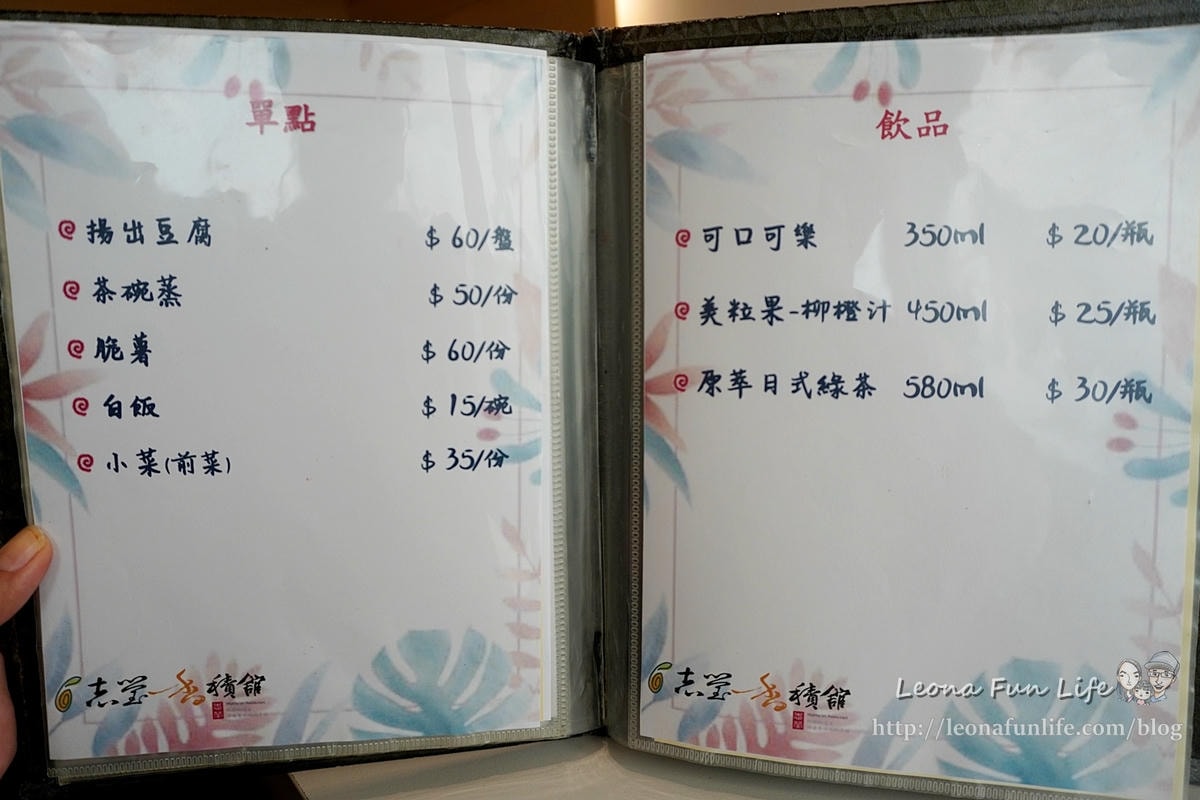 單點
揚出豆腐 $ 60/盤
茶碗蒸 $ 50/份
脆薯 $ 60/份
白飯 $ 15/碗
小菜(前菜) $ 35/份
志瑩一香積館
飲品
可口可樂 350ml $ 20/瓶
美粒果-柳橙汁 450ml $ 25/瓶
原萃日式綠茶 580ml $ 30/瓶
志瑩一香積館
Leona Fun Life
http://leonafunlife.com/blog